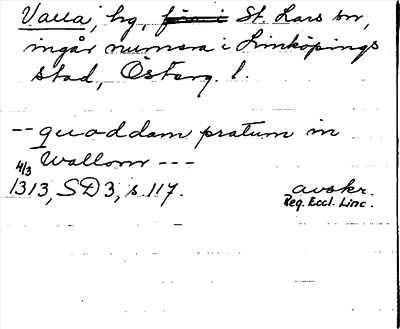 Valla, hg, St. Lars sn,
ingår numera i Linköpings
stad, Österg. l.
-- quoddam pratum in
Wallom ---
4/3
1313, SD3, s. 117.
avskr.
Reg. Eccl. Linc.